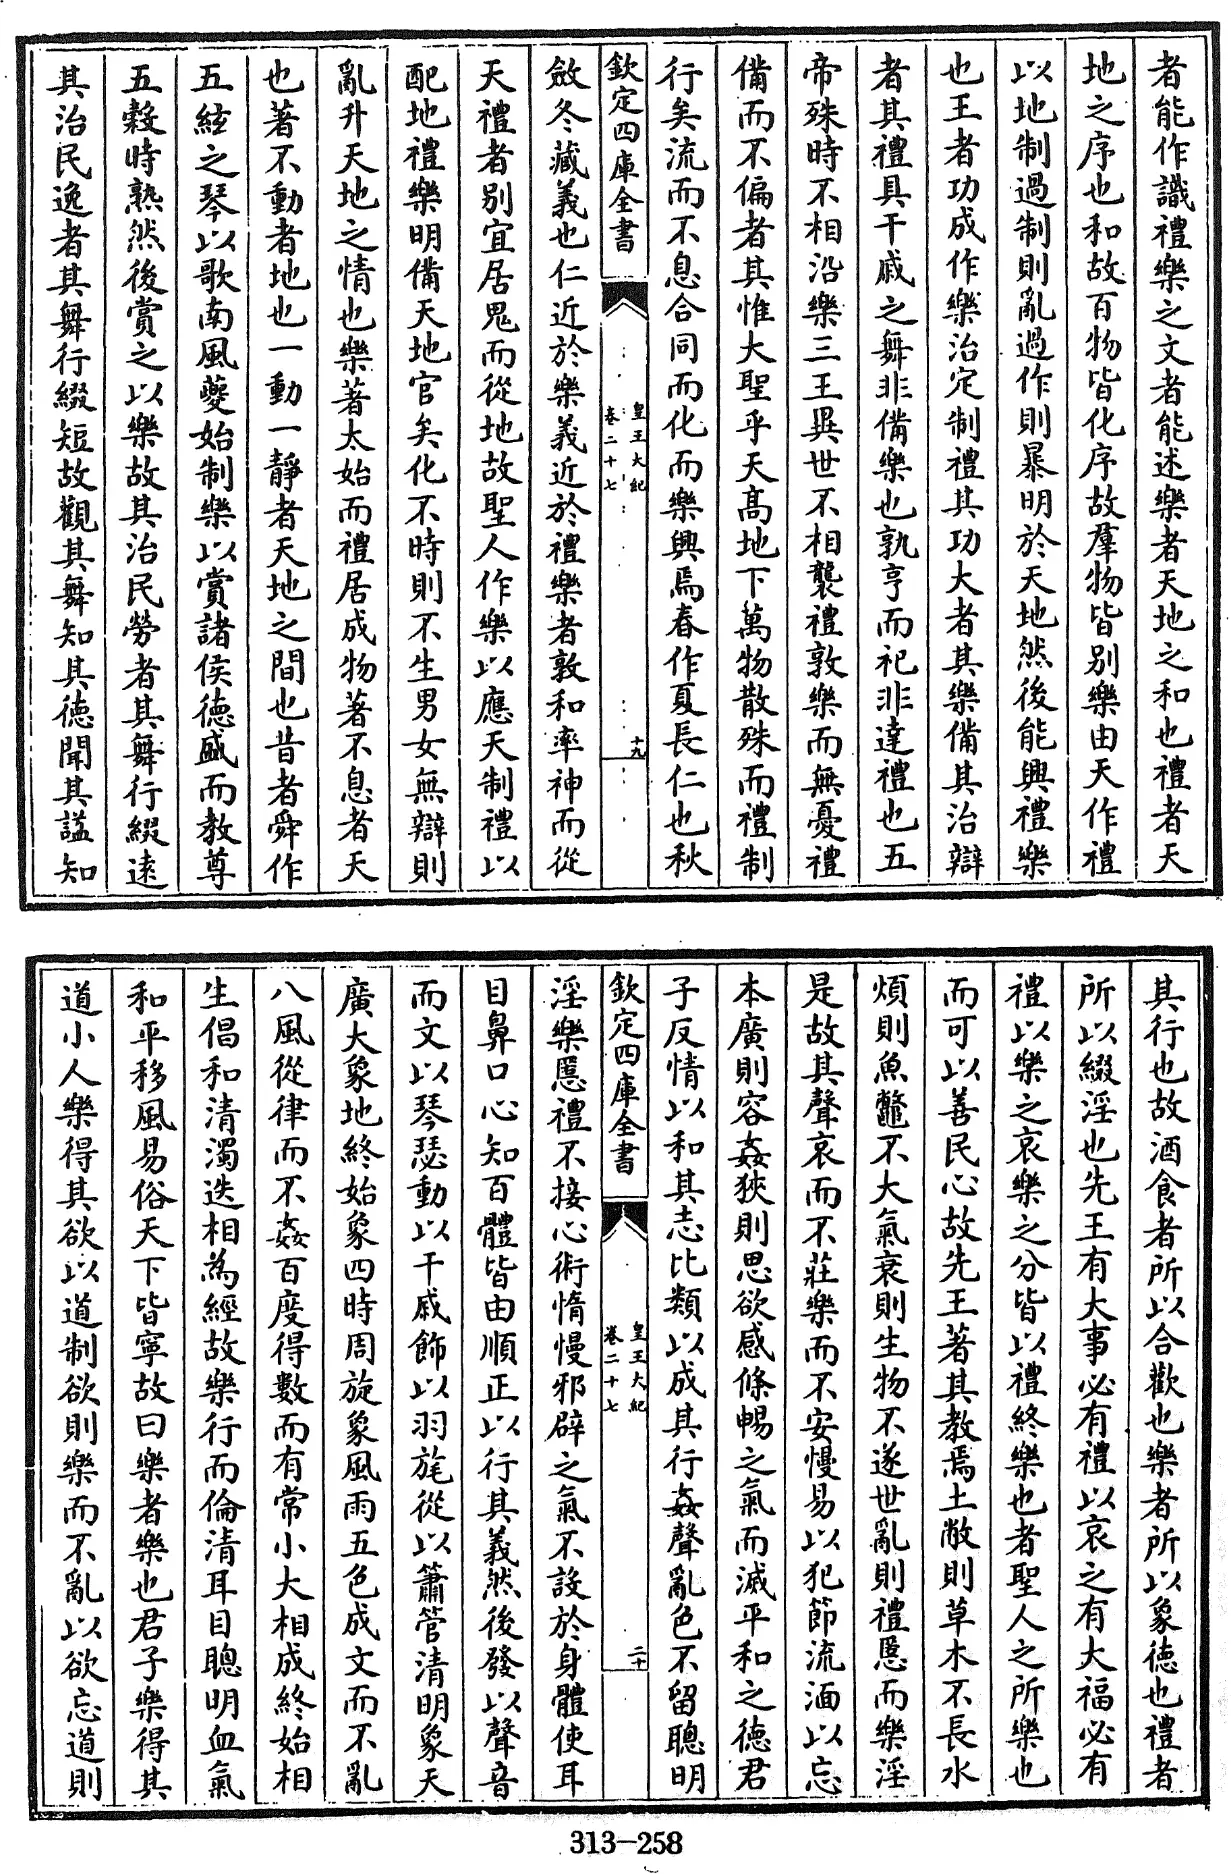 者能作識禮樂之文者能述樂者天地之和也禮者天
地之序也和故百物皆化序故羣物皆別樂由天作禮
以地制過制則亂過作則暴明於天地然後能興禮樂
也王者功成作樂治定制禮其功大者其樂備其治辯
者其禮具干戚之舞非備樂也孰亨而祀非達禮也五
帝殊時不相沿樂三王異世不相襲禮敦樂而無憂禮
備而不偏者其惟大聖乎天高地下萬物散殊而禮制
行矣流而不息合同而化而樂興焉春作夏長仁也秋
欽定四庫全書
皇王大紀
卷二十七
十九
斂冬藏義也仁近於樂義近於禮樂者敦和率神而從
天禮者別宜居鬼而從地故聖人作樂以應天制禮以
配地禮樂明備天地官矣化不時則不生男女無辯則
亂升天地之情也樂著太始而禮居成物著不息者天
也著不動者地也一動一靜者天地之間也昔者舜作
五絃之琴以歌南風夔始制樂以賞諸侯德盛而教尊
五穀時熟然後賞之以樂故其治民勞者其舞行綴遠
其治民逸者其舞行綴短故觀其舞知其德聞其諡知
其行也故酒食者所以合歡也樂者所以象德也禮者
所以綴淫也先王有大事必有禮以哀之有大福必有
禮以樂之哀樂之分皆以禮終樂也者聖人之所樂也
而可以善民心故先王著其教焉土敝則草木不長水
煩則魚鼈不大氣衰則生物不遂世亂則禮慝而樂淫
是故其聲哀而不莊樂而不安慢易以犯節流湎以忘
本廣則容姦狹則思欲感條暢之氣而滅平和之德君
子反情以和其志比類以成其行姦聲亂色不留聰明
欽定四庫全書
皇王大紀
卷二十七
二十
淫樂慝禮不接心術惰慢邪辟之氣不設於身體使耳
目鼻口心知百體皆由順正以行其義然後發以聲音
而文以琴瑟動以干戚飾以羽旄從以簫管清明象天
廣大象地終始象四時周旋象風雨五色成文而不亂
八風從律而不姦百度得數而有常小大相成終始相
生倡和清濁迭相為經故樂行而倫清耳目聰明血氣
和平移風易俗天下皆寧故曰樂者樂也君子樂得其
道小人樂得其欲以道制欲則樂而不亂以欲忘道則
313-258